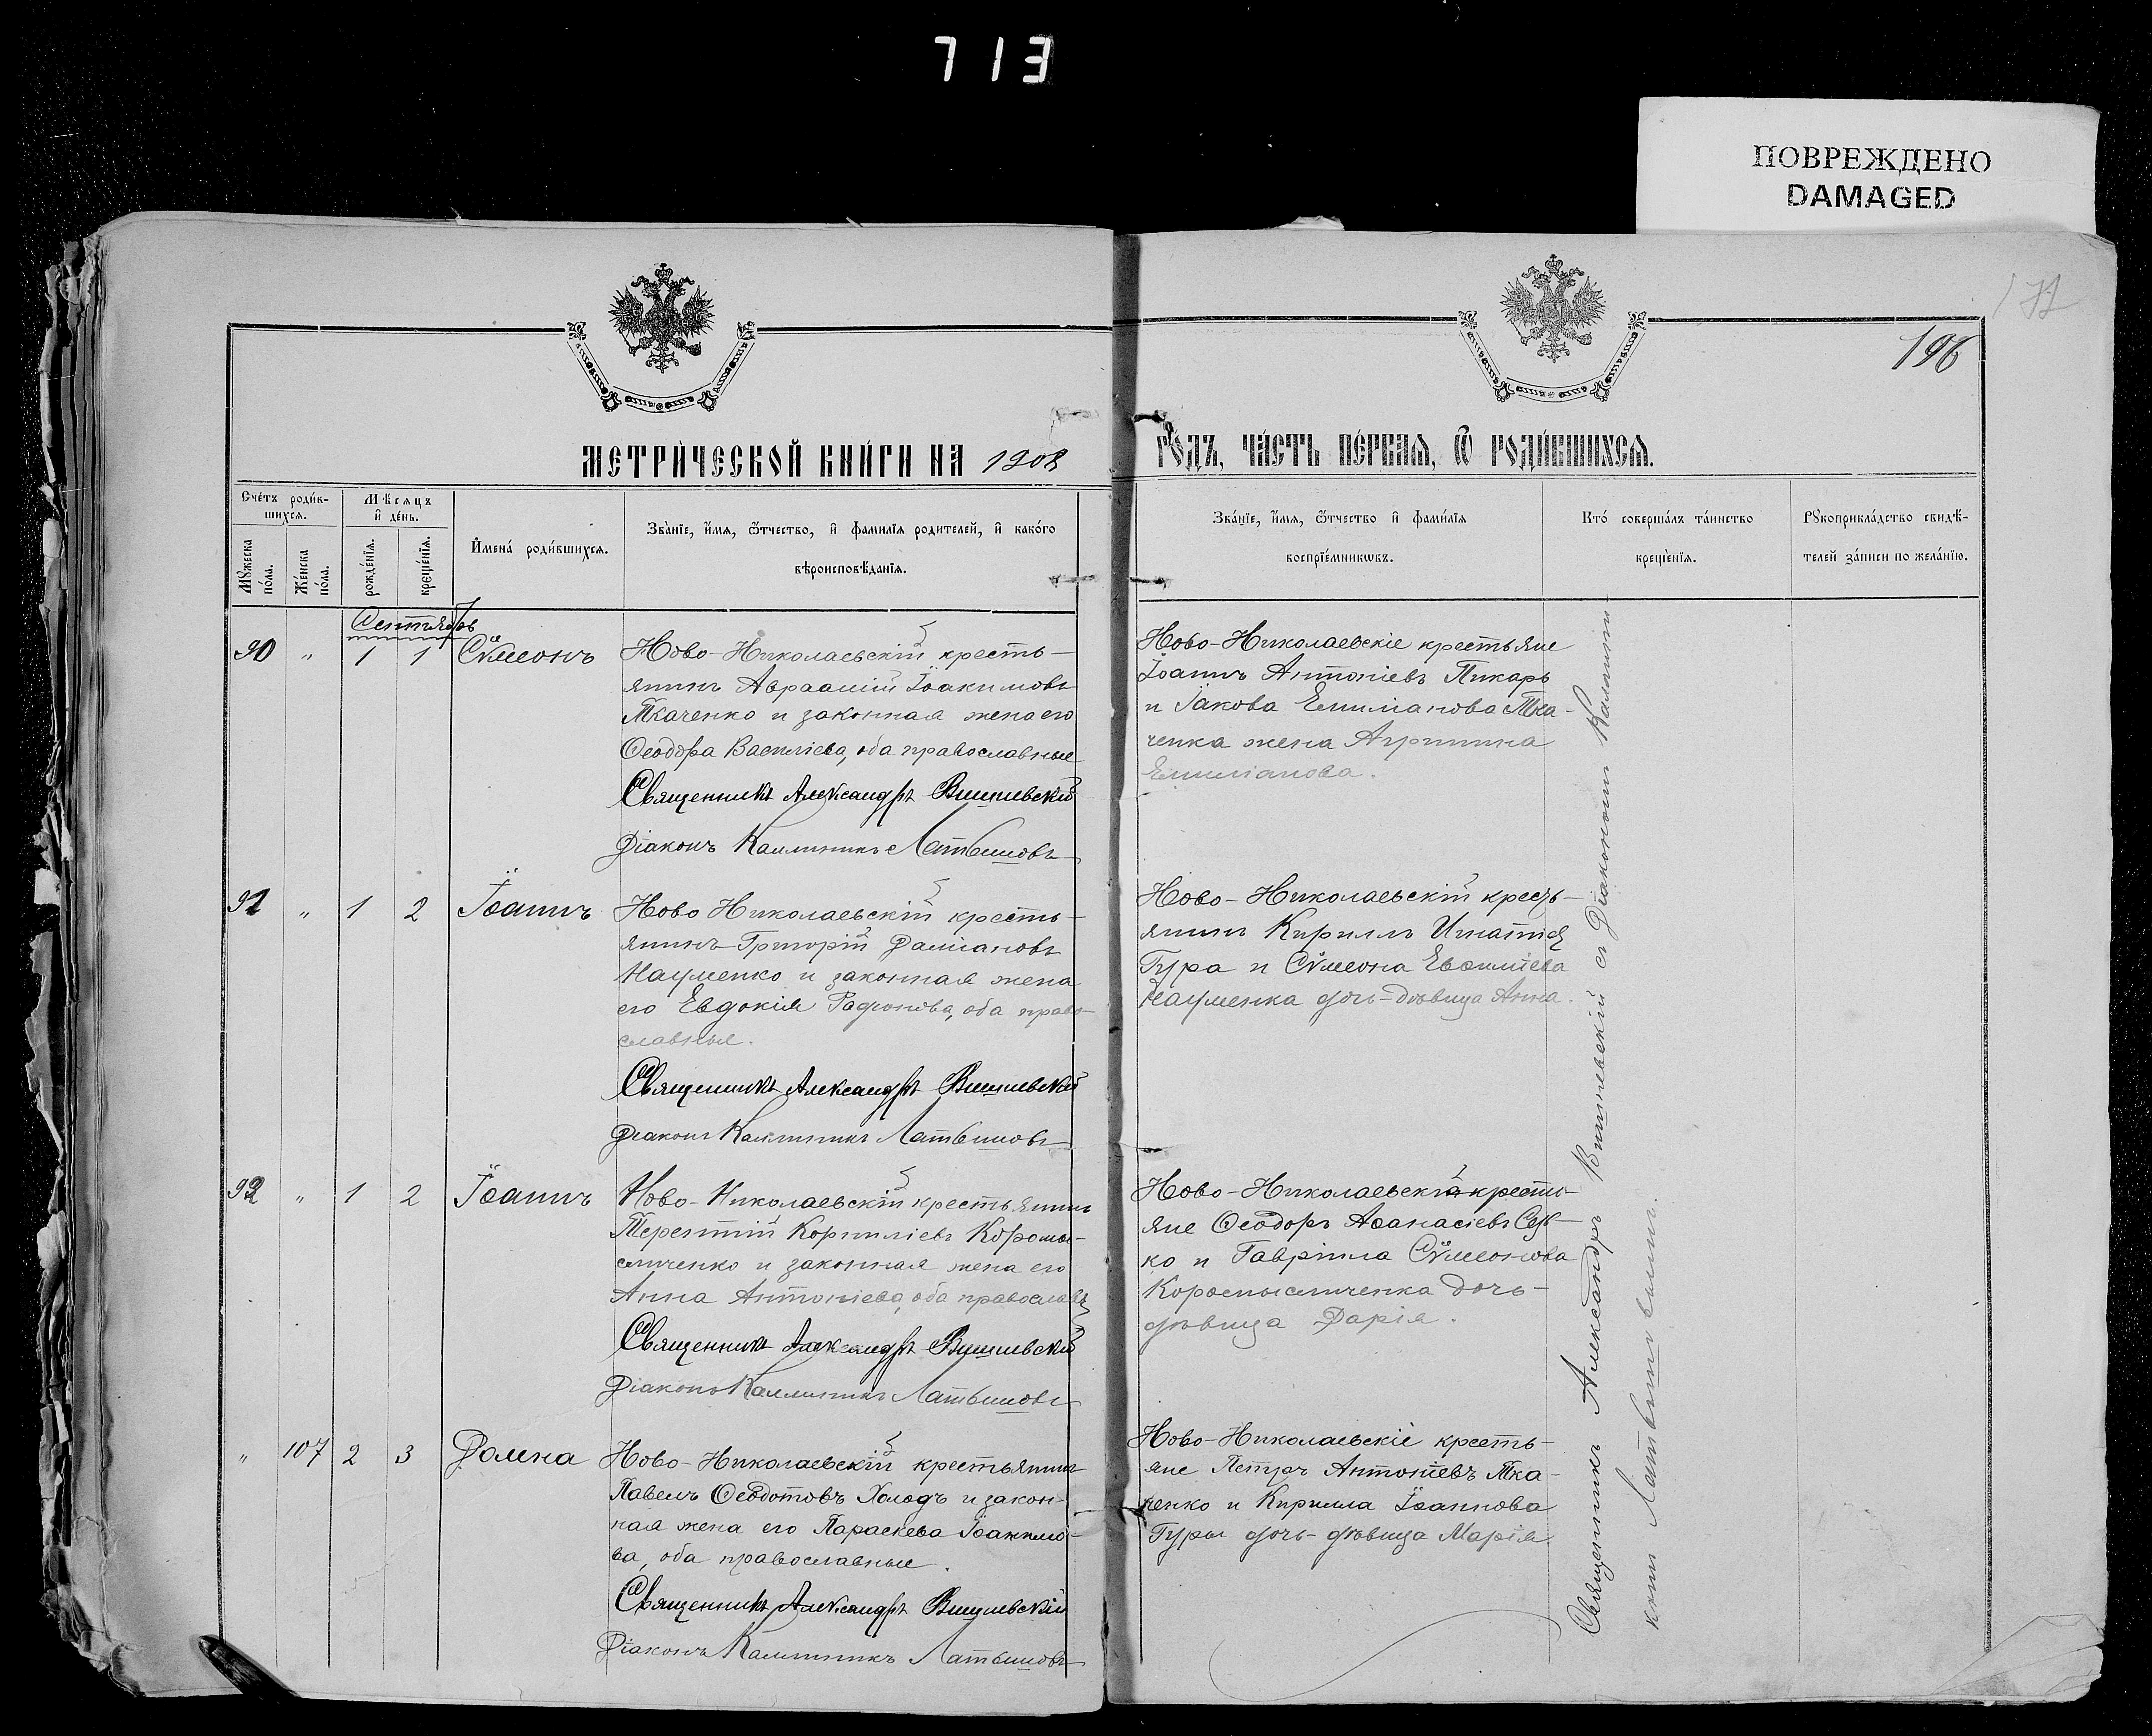 713
ПОВРЕЖДЕНО
DAMAGED
196
МЕТРИ́ЧЕСКОЙ КНИ́ГИ НА 1908
ГО́ДЪ, ЧА́СТЬ ПЕ́РВАЯ, Ѡ РОДИ́ВШИХСЯ.
Сче́тъ роди́в-
шихся.
Мѣсяцъ
и де́нь.
Мꙋжеска
по́ла.
Же́нска
по́ла.
рожде́нїя.
креще́нїя.
Имена́ роди́вшихся.
Зва́нїе, и́мя, ѻ́тчество, и фамилїя родителей, и како́го
вѣроисповѣданїя.
Зва́нїе, и́мя, ѻ́тчество и фами́лїя
воспрїе́мникѡвъ.
Кто́ соверша́лъ та́инство
креще́нїя.
Рꙋкоприкла́дство свидѣ́-
телей за́писи по жела́нїю.
Сентябрь
90 " 1 1 Сѵмеонъ
Ново-Николаевскій кресть-
янинъ Авраамій Іоакимовъ
Ткаченко и законная жена его
Ѳеодора Василіева, оба православные
Священникъ Александръ Вишневскій
Діаконъ Каллиникъ Латвиновъ
Ново-Николаевскіе крестьяне
Іоаннъ Антоніевъ Пикарь
и Іакова Емиліанова Тка-
ченка жена Агриппина
Емиліанова.
91 " 1 2 Іоаннъ
Ново Николаевскій кресть-
янинъ Григорій Даміановъ
Науменко и законная жена
его Евдокія Родіонова, оба право-
славные.
Священникъ Александръ Вишневскій
Діаконъ Каллиникъ Латвиновъ
Ново-Николаевскій кресть-
янинъ Кириллъ Игнатіев
Гура и Сѵмеона Евѳиміева
Науменка дочь-дѣвица Анна.
92 " 1 2 Іоаннъ
Ново-Николаевскій крестьянинъ
Терентій Корниліевъ Коромы-
сличенко и законная жена его
Анна Антоніева, оба православ
Священникъ Александръ Вишневскій
Діаконъ Каллиникъ Латвиновъ
Ново-Николаевскіе кресть-
яне Ѳеодоръ Аѳанасіевъ
ко и Гавріила Сѵмеонова
Коромысличенка дочь-
дѣвица Дарія.
" 107 2 3 Домна
Ново-Николаевскій крестьянинъ
Павелъ Ѳеодотовъ Холодъ и закон-
ная жена его Параскева Іоакимо-
ва, оба православные.
Священникъ Александръ Вишневскій
Діаконъ Каллиникъ Латвиновъ
Ново-Николаевскіе кресть-
яне Петръ Антоніевъ Тка-
ченко и Кирилла Іоаннова
Гуры дочь-дѣвица Марія
Священникъ Александръ Вишневскій съ Діакономъ Каллини-
комъ Латвиновымъ.